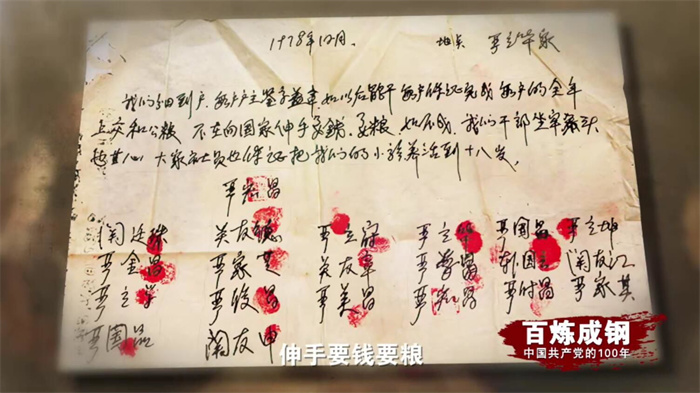 1978年12月. 地点 严立华家
我们分田到户,每户户主签字盖章,如以后能干,每户保证完成每户的全年
上交和公粮 不在向国家伸手要钱,要粮 如不成,我们干部坐牢杀头
也甘心,大家社员也保证把我们的小孩养活到十八岁.
严宏昌
关廷珠 关友德 严立富 严立华 严国昌 严立坤
严金昌 严家芝 关友章 严学昌 韩国云 关友江
严立学 严俊昌 严美昌 严宏昌 严付昌 严家其
严国品 关友申
百炼成钢
中国共产党的100年
伸手要钱要粮